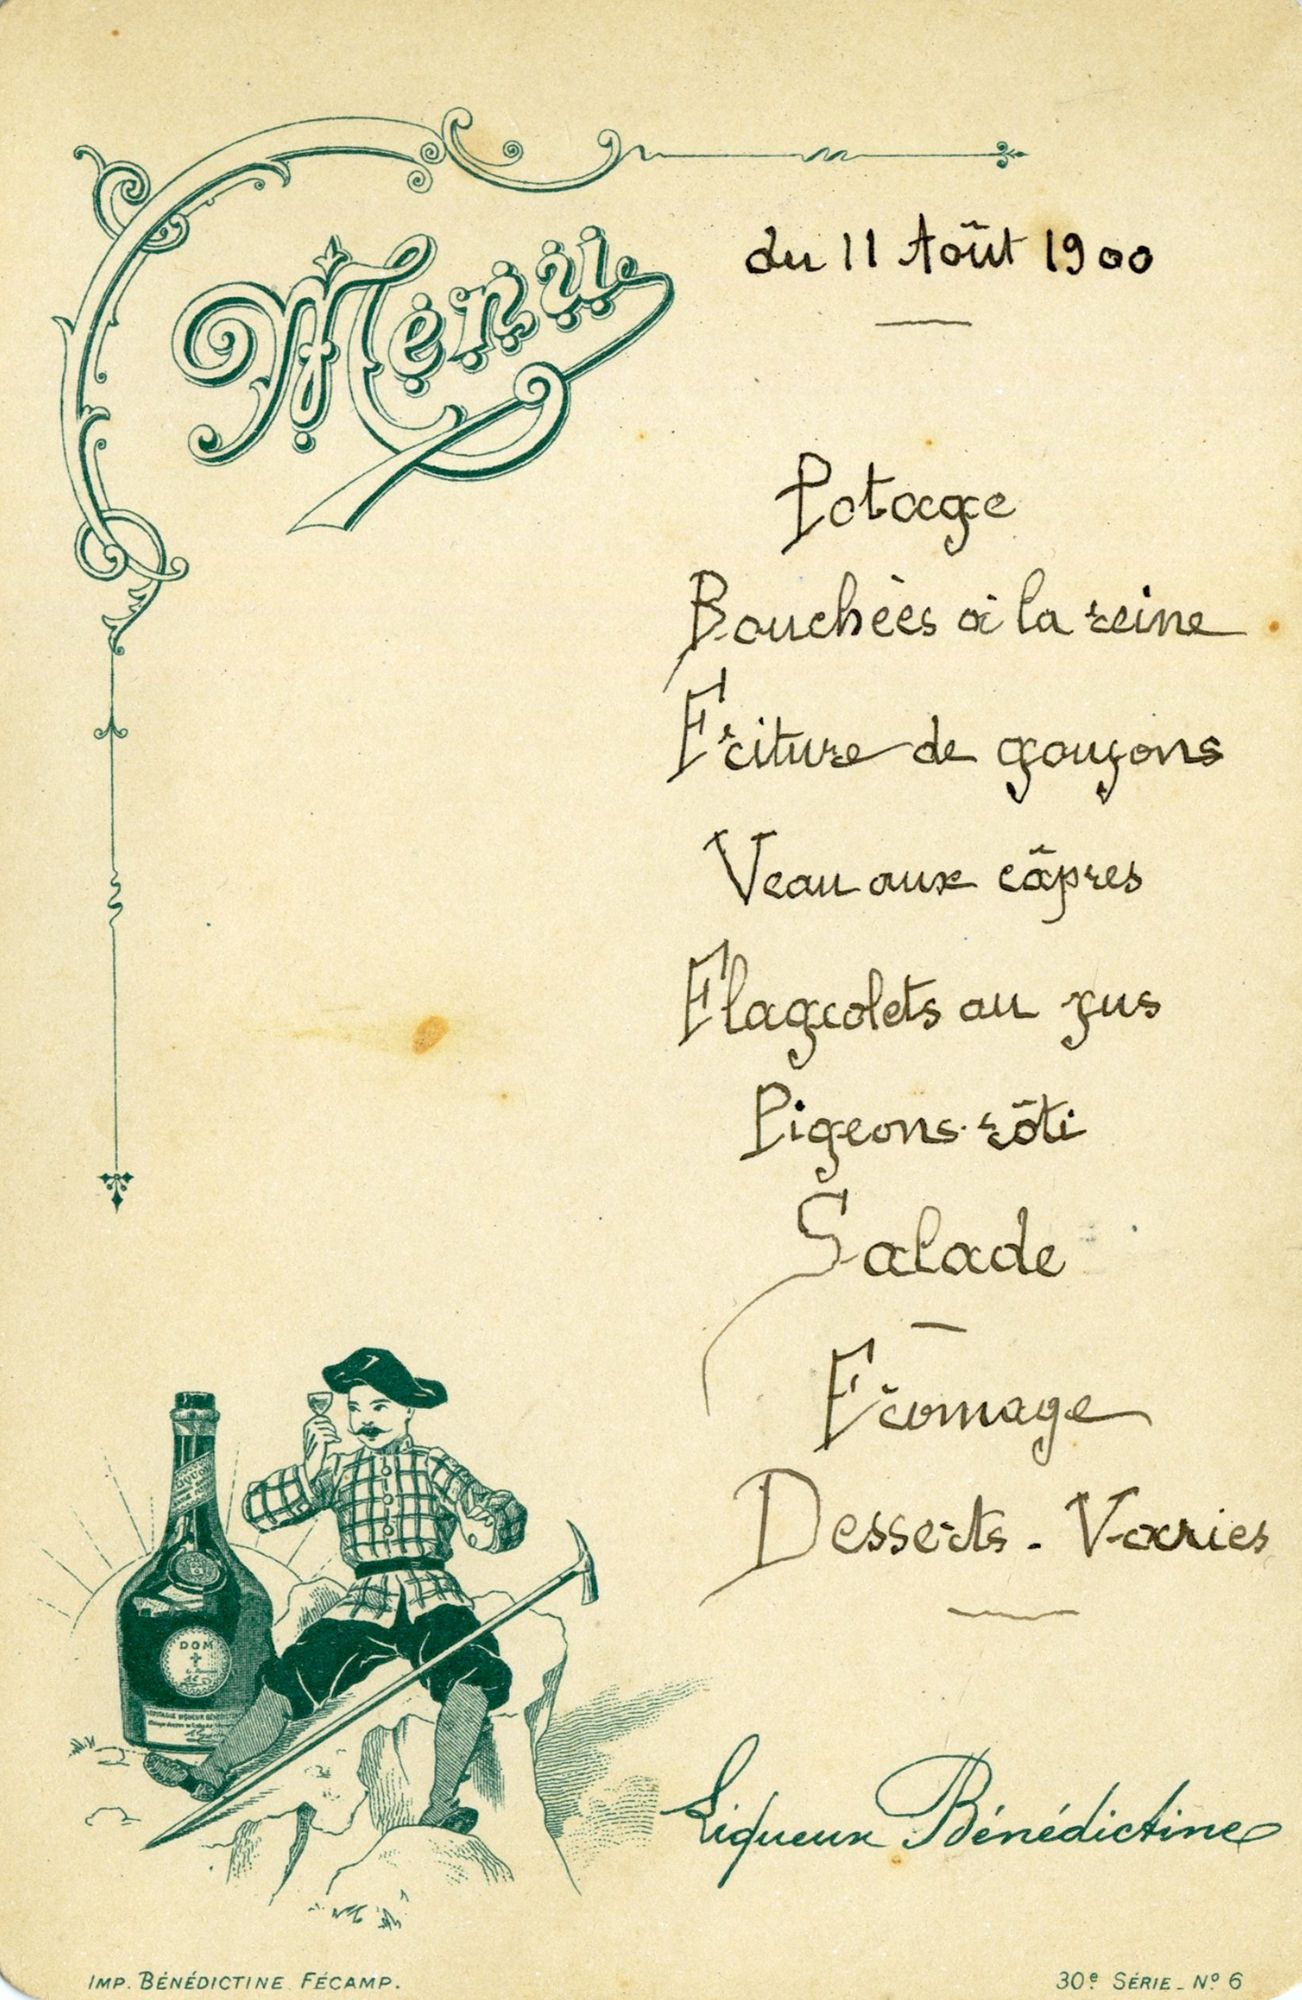 Menu
du 11 Août 1900
Potage
Bouchées à la reine
Friture de goujons
Veau aux câpres
Flageolets au jus
Pigeons rôti
Salade
Fromage
Desserts - Varies
DOM
Liqueur Bénédictine
IMP. BÉNÉDICTINE FÉCAMP.
30e SÉRIE - No 6